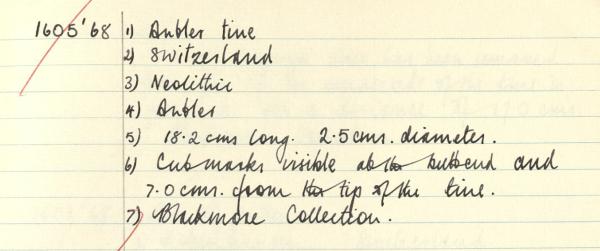 1605'68 1) Antler tine
2) Switzerland
3) Neolithic
4) Antler
5) 18.2 cms long. 2.5 cms. diameter.
6) Cut marks visible at butt end and
7.0 cms. from tip of the tine.
7) Blackmore Collection.